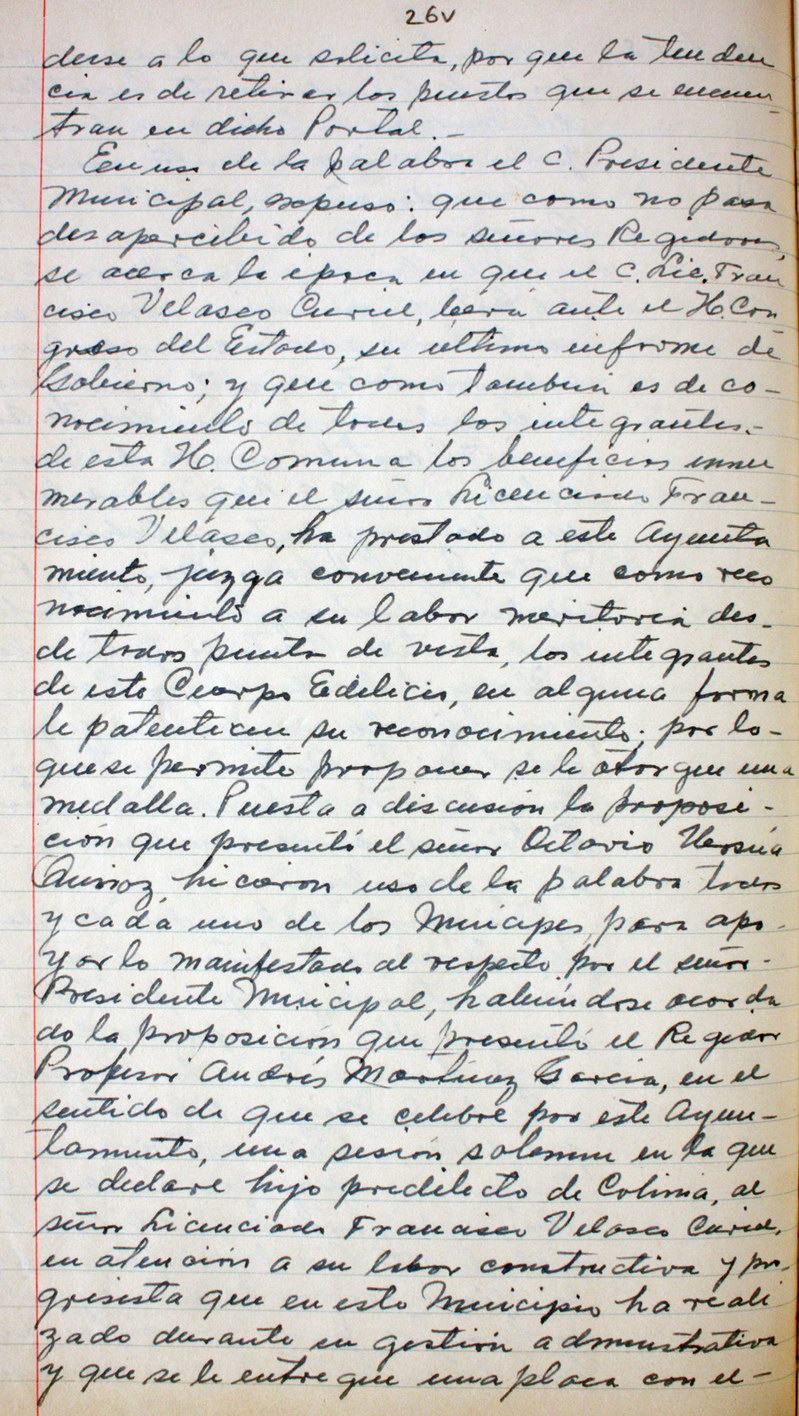 26v
derse a lo que solicita, por que la tenden
cia es de retirar los puestos que se encuen-
tran en dicho Portal.-
En uso de la palabra el C. Presidente
Municipal, expuso: que como no pasa
desapercibido de los señores Regidores,
se acerca la época en que el C. Lic. Fran
cisco Velasco Curiel, leerá ante el H. Con
greso del Estado, su ultimo informe de
Gobierno; y que como tambien es de co-
nocimiento de todos los integrantes.-
de esta H. Comuna los beneficios innu
merables que el señor Licenciado Fran-
cisco Velasco, ha prestado a este Ayunta
miento, juzga conveniente que como reco
nocimiento a su labor meritoria des-
de todos punto de vista, los integrantes
de este Cuerpo Edilicio, en alguna forma
le patenticen su reconocimiento; por lo-
que se permite proponer se le otorgue una
medalla. Puesta a discusión la proposi-
ción que presentó el señor Octavio
Quiroz, hicieron uso de la palabra todos
y cada uno de los Munícipes, para apo-
yar lo manifestado al respecto por el señor-
Presidente Municipal, habiéndose acorda
do la proposición que presentó el Regidor
Profesor Andrés Martínez García, en el
sentido de que se celebre por este Ayun-
tamiento, una sesión solemne en la que
se declare hijo predilecto de Colima, al
señor Licenciado Francisco Velasco Curiel,
en atención a su labor constructiva y pro-
gresista que en este Municipio ha reali
zado durante su gestión administrativa
y que se le entregue una placa con el-